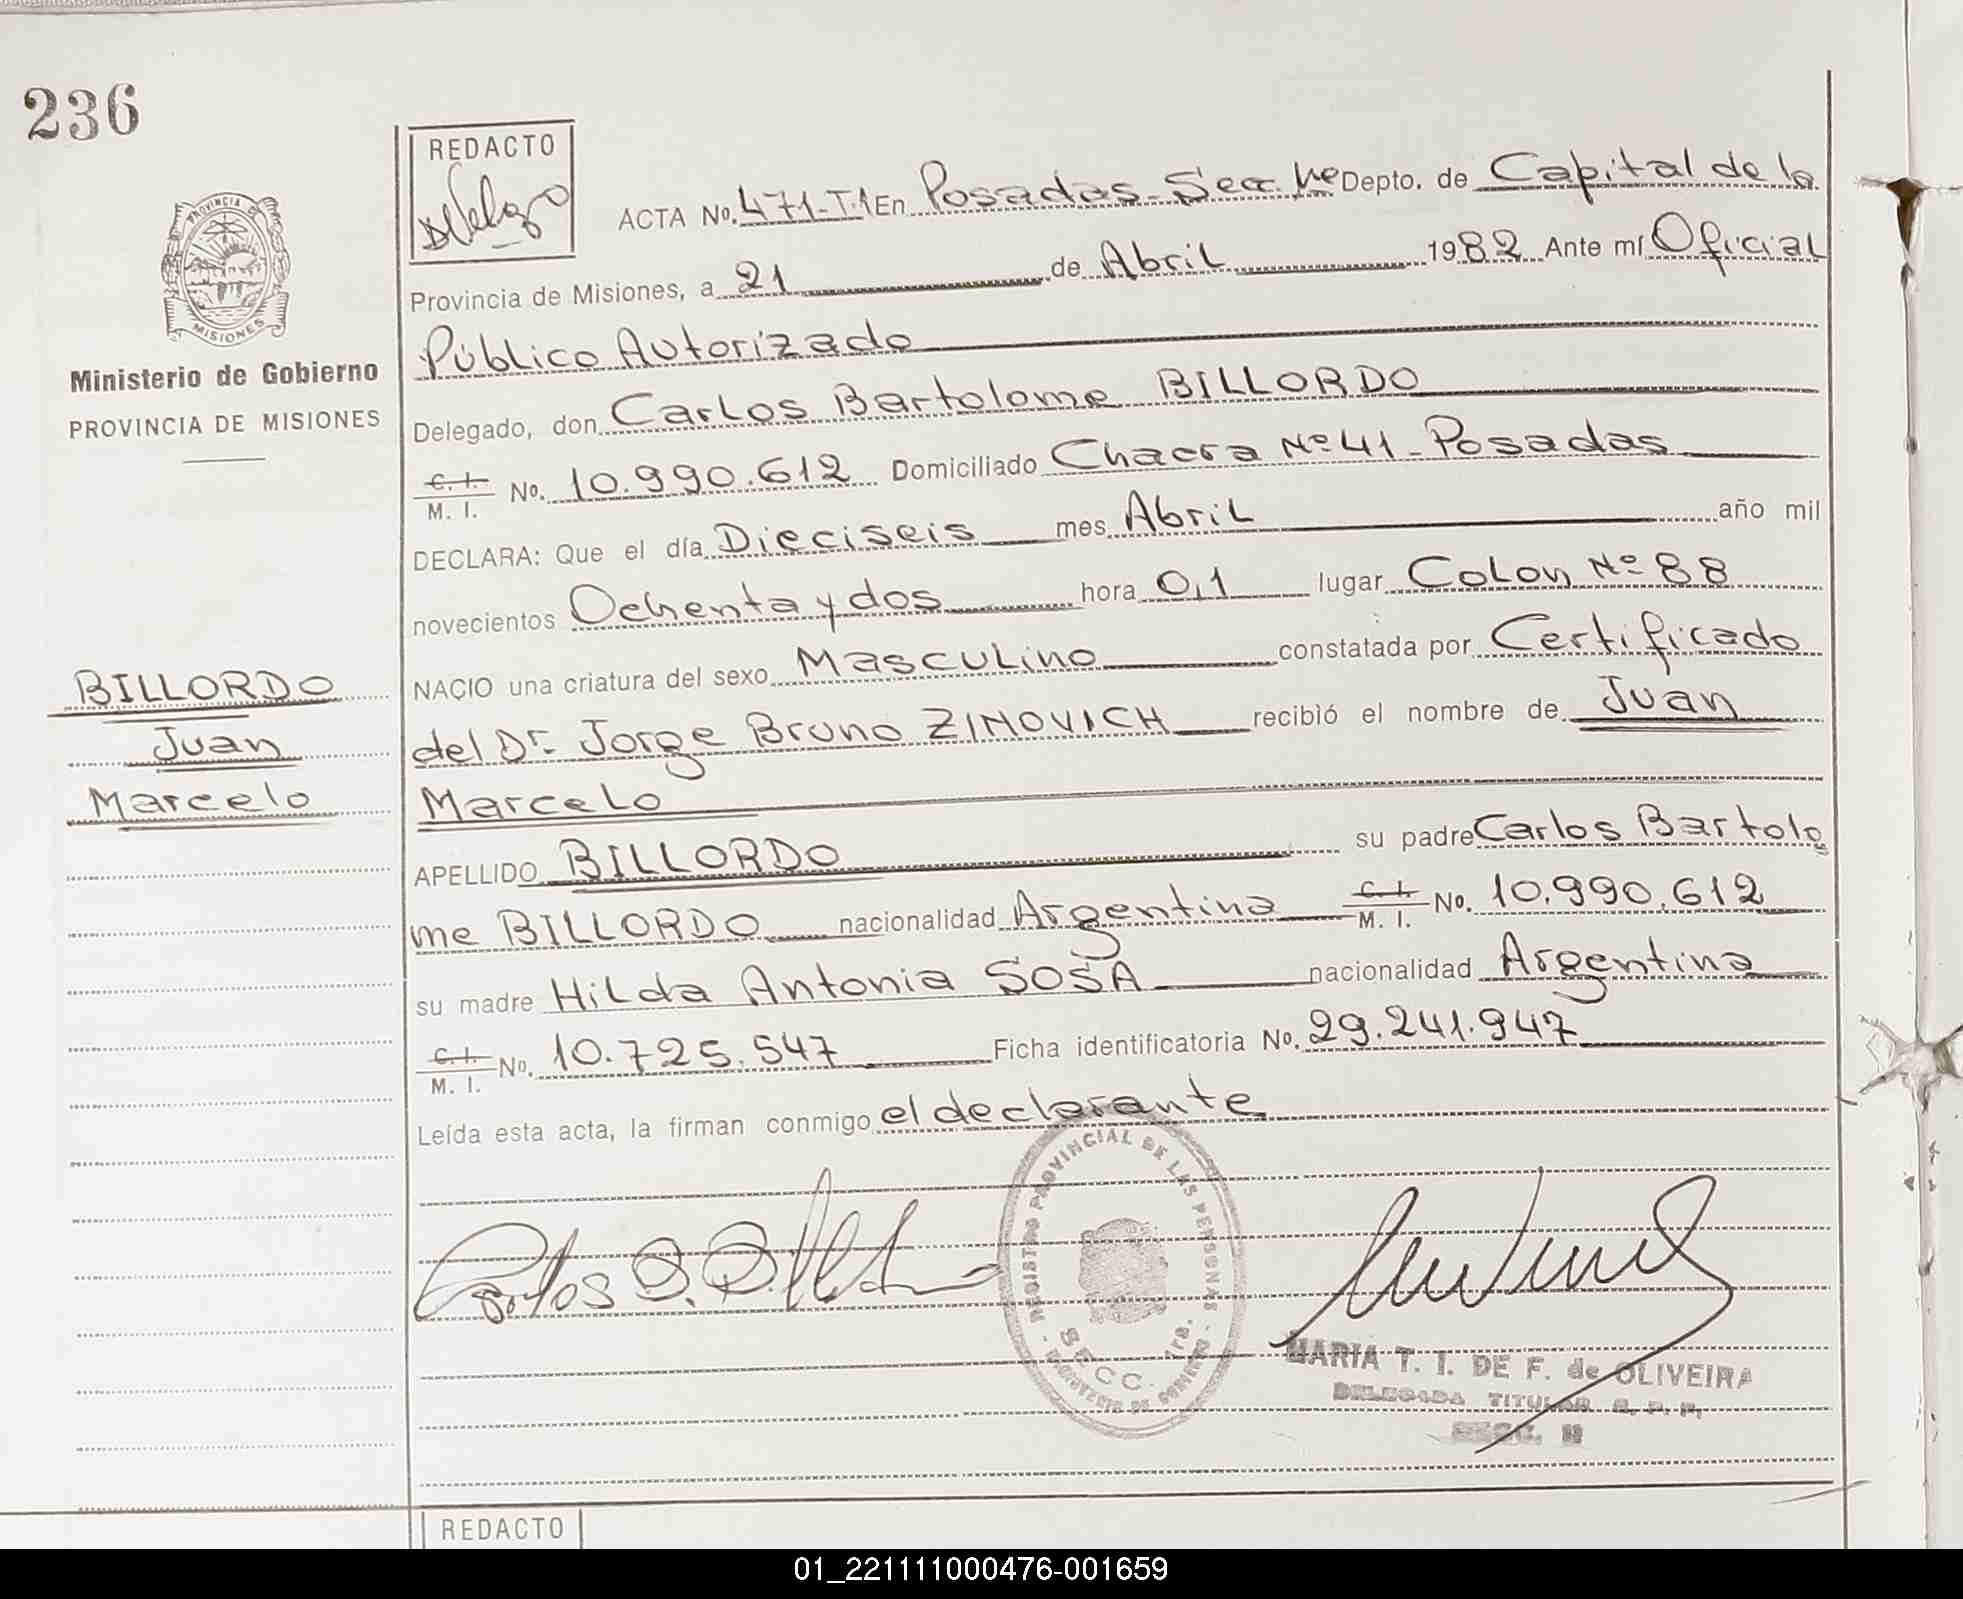 236
REDACTO
PROVINCIA DE
MISIONES
Ministerio de Gobierno
PROVINCIA DE MISIONES
ACTA No. 471-T.1 En Posadas - Secc. 1ra Depto. de Capital de la
Provincia de Misiones, a 21 de Abril 1982 Ante mí Oficial
Público Autorizado
Delegado, don Carlos Bartolome BILLORDO
C. I. / M. I. No. 10.990.612 Domiciliado Chacra Nº 41 - Posadas
DECLARA: Que el día Dieciseis mes Abril año mil
novecientos Ochenta y dos hora 0,1 lugar Colon Nº 88
NACIO una criatura del sexo Masculino constatada por Certificado
del Dr. Jorge Bruno ZINOVICH recibió el nombre de Juan
Marcelo
APELLIDO BILLORDO su padre Carlos Bartolo
me BILLORDO nacionalidad Argentina C. I. / M. I. No. 10.990.612
su madre Hilda Antonia SOSA nacionalidad Argentina
C. I. / M. I. No. 10.725.547 Ficha identificatoria No. 29.241.947
Leída esta acta, la firman conmigo el declarante
BILLORDO
Juan
Marcelo
Carlos B. Billordo
REGISTRO PROVINCIAL DE LAS PERSONAS
SECC. 1ra.
MINISTERIO DE GOBIERNO
MARIA T. I. DE F. de OLIVEIRA
DELEGADA TITULAR R. P. P.
SECC.
REDACTO
01_221111000476-001659